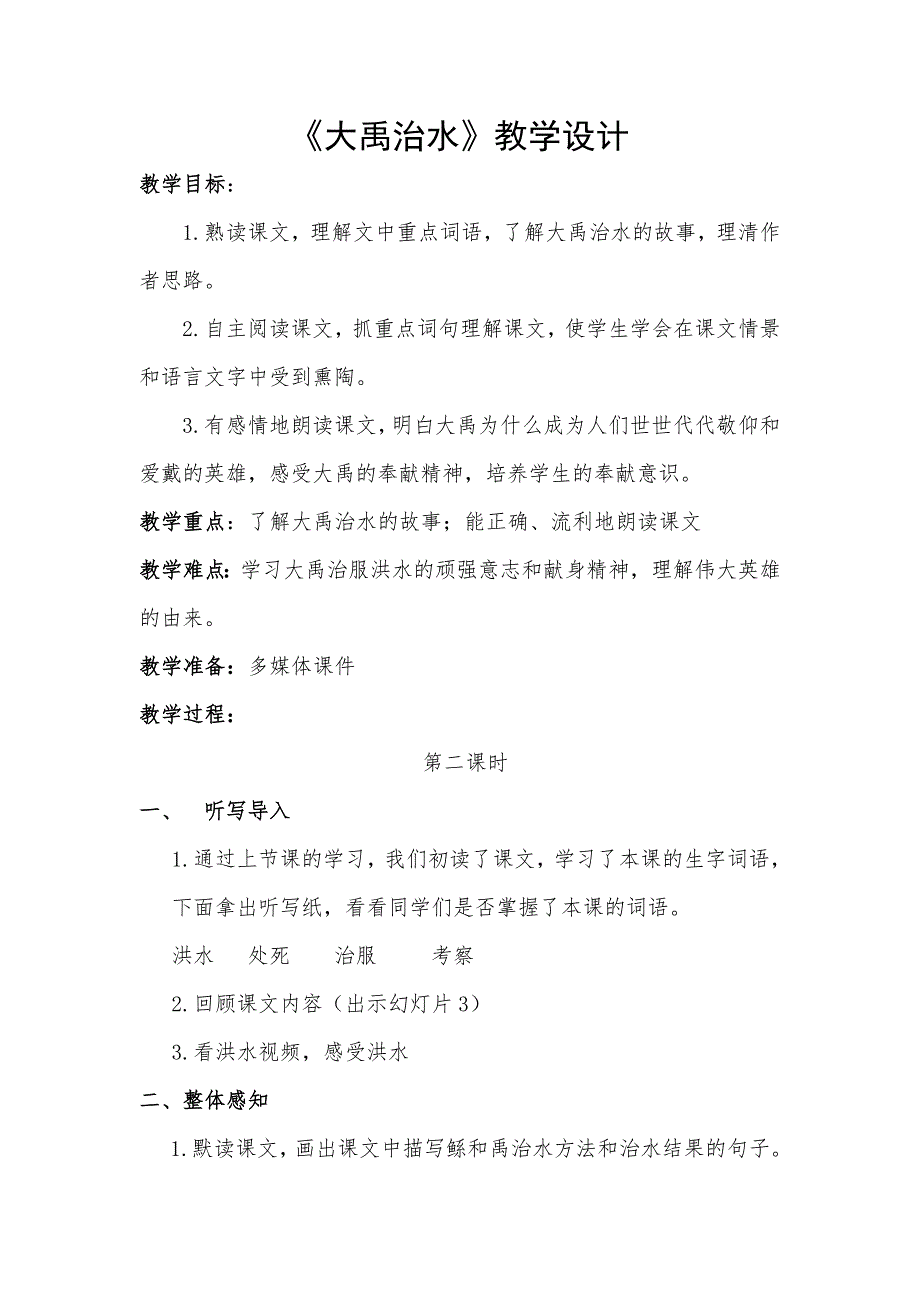 《大禹治水》教学设计
教学目标：
1.熟读课文，理解文中重点词语，了解大禹治水的故事，理清作
者思路。
2.自主阅读课文，抓重点词句理解课文，使学生学会在课文情景
和语言文字中受到熏陶。
3.有感情地朗读课文，明白大禹为什么成为人们世世代代敬仰和
爱戴的英雄，感受大禹的奉献精神，培养学生的奉献意识。
教学重点：了解大禹治水的故事；能正确、流利地朗读课文
教学难点：学习大禹治服洪水的顽强意志和献身精神，理解伟大英雄
的由来。
教学准备：多媒体课件
教学过程：
第二课时
一、 听写导入
1.通过上节课的学习，我们初读了课文，学习了本课的生字词语，
下面拿出听写纸，看看同学们是否掌握了本课的词语。
洪水 处死 治服 考察
2.回顾课文内容（出示幻灯片3）
3.看洪水视频，感受洪水
二、整体感知
1.默读课文，画出课文中描写鲧和禹治水方法和治水结果的句子。